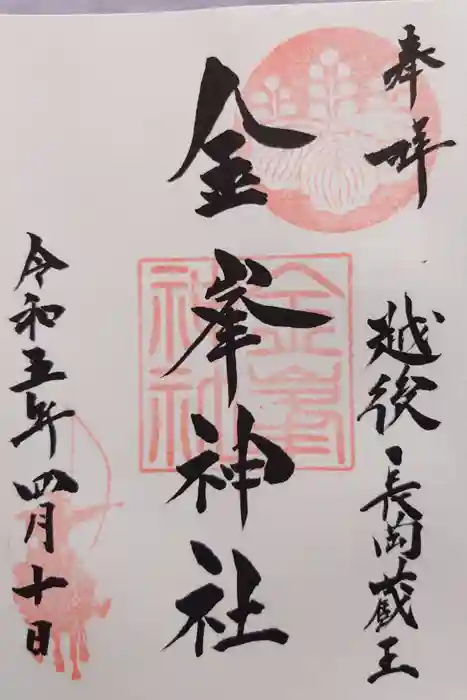 奉拝
越後長岡蔵王
金峯神社
金峯神社
令和五年四月十日